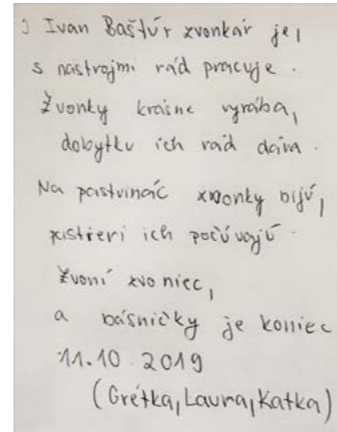 Ivan Baštúr zvonkár je,
s nástrojmi rád pracuje.
Zvonky krásne vyrába,
dobytku ich rád dáva.
Na pastvinác zvonky bijú,
pastieri ich počúvajú.
Zvoní zvoniec,
a básničky je koniec
11.10.2019
(Grétka, Laura, Katka)